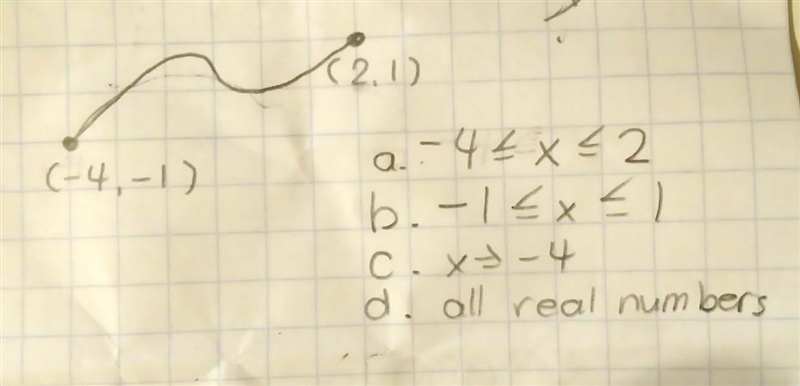 (2,1)
(-4,-1)
a. -4 ≤ x ≤ 2
b. -1 ≤ x ≤ 1
c. x ≥ -4
d. all real numbers